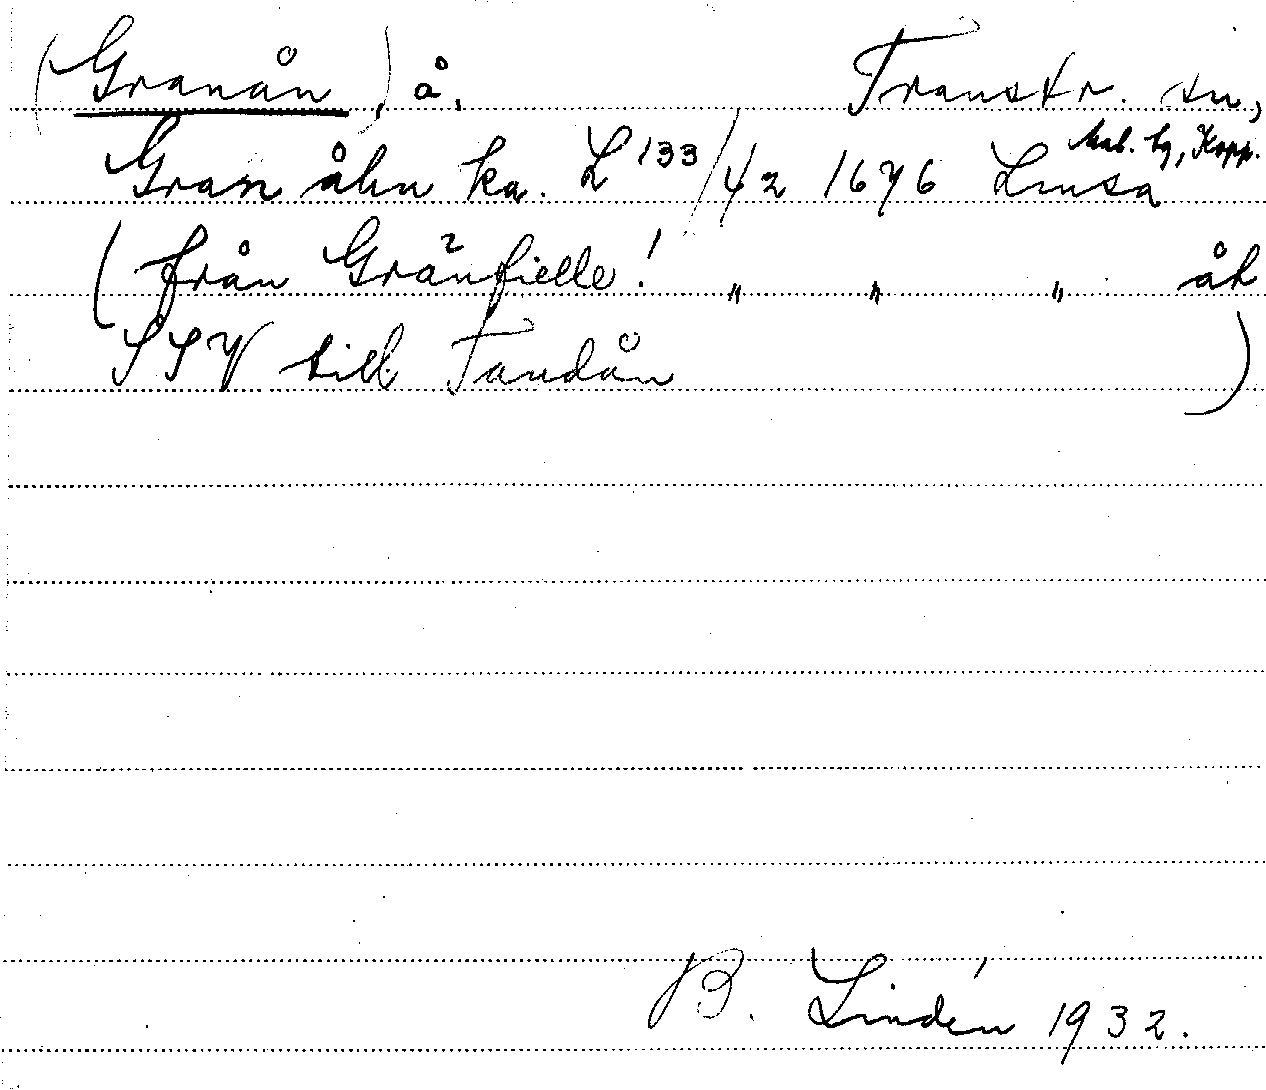 (Granån), å. Transtr. sn,
Mal. tg, Kopp.
Gran åhn ka. L 133/42 1676 Limsa
(från Gränfielle! " " " åk
SSV till Tandån )
B. Lindén 1932.